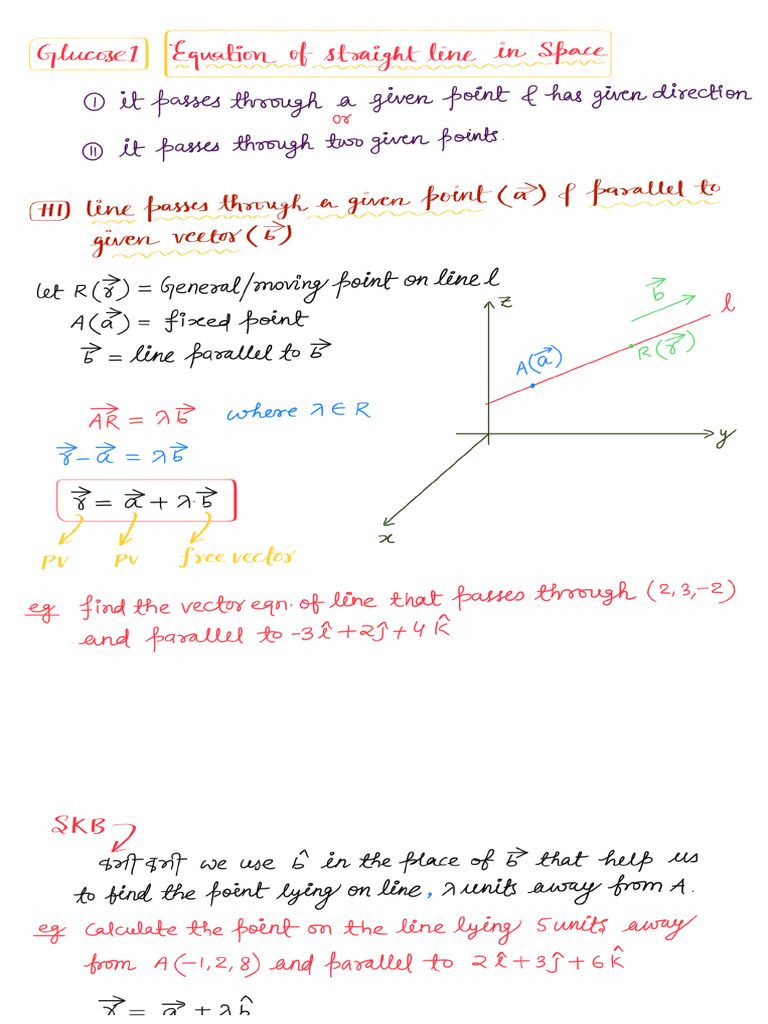 Glucose 1 Equation of straight line in Space
I it passes through a given point & has given direction
or
II it passes through two given points.
H1) line passes through a given point (a⃗) & parallel to
given vector (b⃗)
let R(r⃗) = General/moving point on line l
A(a⃗) = fixed point
b⃗ = line parallel to b⃗
AR⃗ = λb⃗ where λ∈R
r⃗-a⃗ = λb⃗
r⃗ = a⃗ + λ.b⃗
PV PV free vector
z
b⃗
l
A(a⃗)
R(r⃗)
y
x
eg find the vector eqn. of line that passes through (2,3,-2)
and parallel to -3î+2ĵ+4k̂
SKB
कभी कभी we use b̂ in the place of b⃗ that help us
to find the point lying on line, λ units away from A.
eg Calculate the point on the line lying 5 units away
from A(-1,2,8) and parallel to 2î+3ĵ+6k̂
r⃗ = a⃗ + λb̂